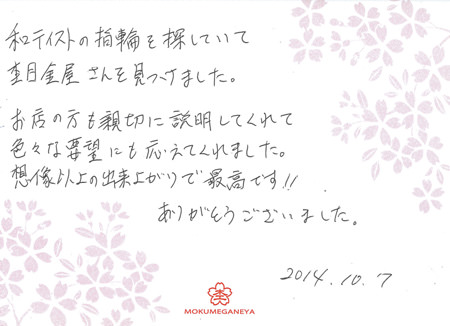 和テイストの指輪を探していて
杢目金屋さんを見つけました。
お店の方も親切に説明してくれて
色々な要望にも応えてくれました。
想像以上の出来上がりで最高です!!
ありがとうございました。
2014.10.7
杢
MOKUMEGANEYA